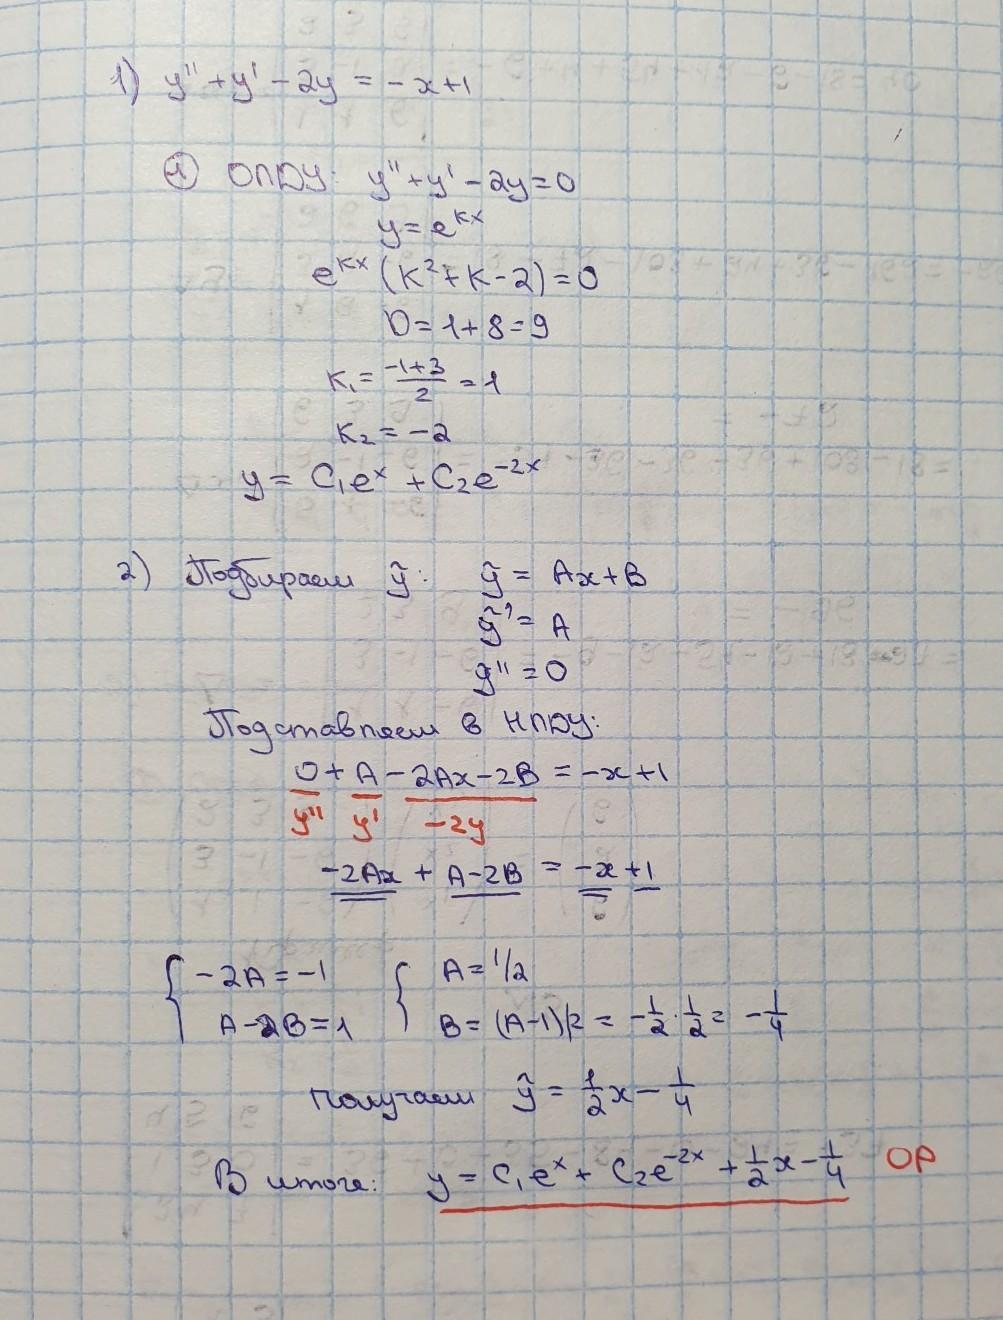 1) y'' + y' - 2y = -x+1
① ОПДУ: y'' + y' - 2y = 0
y = e^{kx}
e^{kx} (k² + k - 2) = 0
D = 1 + 8 = 9
k₁ = \frac{-1+3}{2} = 1
k₂ = -2
y = C₁e^x + C₂e^{-2x}
2) Подбираем ỹ: ỹ = Ax + B
ỹ' = A
y'' = 0
Подставляем в НПДУ:
0 + A - 2Ax - 2B = -x+1
y'' y' -2y
-2Ax + A-2B = -x +1
{ -2A = -1 { A = 1/2
A-2B = 1 B = (A-1)/2 = -\frac{1}{2} · \frac{1}{2} = -\frac{1}{4}
Получаем ỹ = \frac{1}{2}x - \frac{1}{4}
В итоге: y = C₁e^x + C₂e^{-2x} + \frac{1}{2}x - \frac{1}{4} ОР